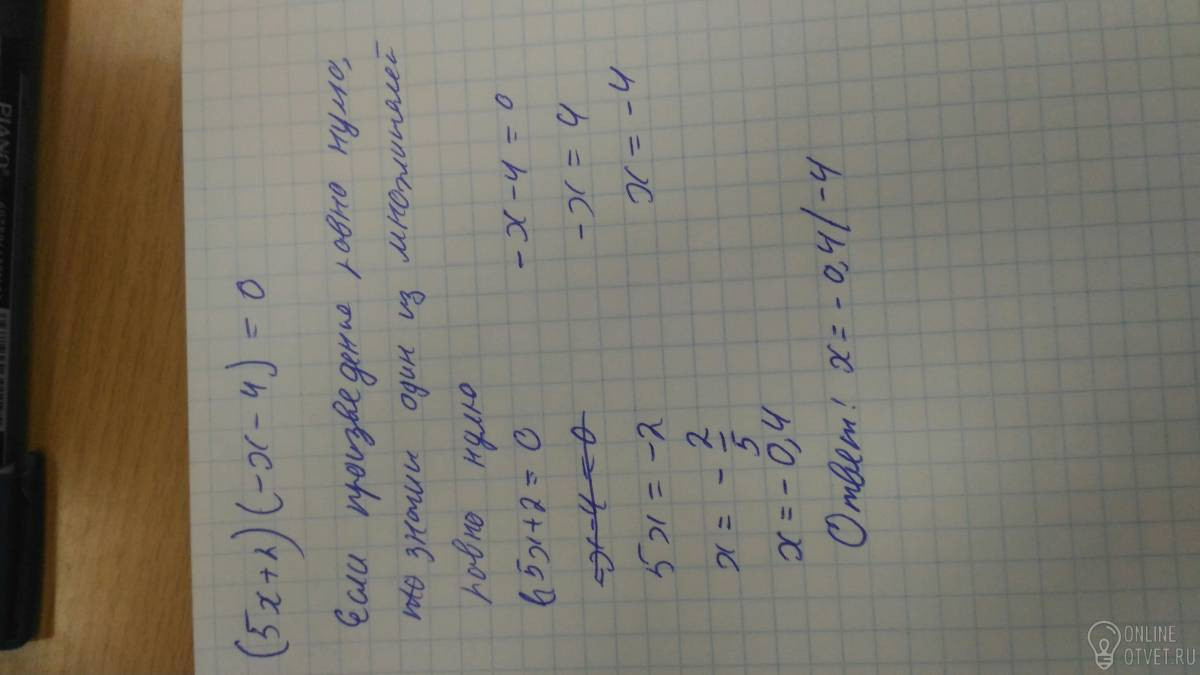 (5x+2)(-x-4)=0
Если произведение равно нулю,
то значит один из множителей
равно нулю
5x+2=0 -x-4=0
-x-4=0 -x=4
5x=-2 x=-4
x=-2/5
x=-0,4
Ответ: x=-0,4/-4
PIANO
ONLINE
OTVET.RU